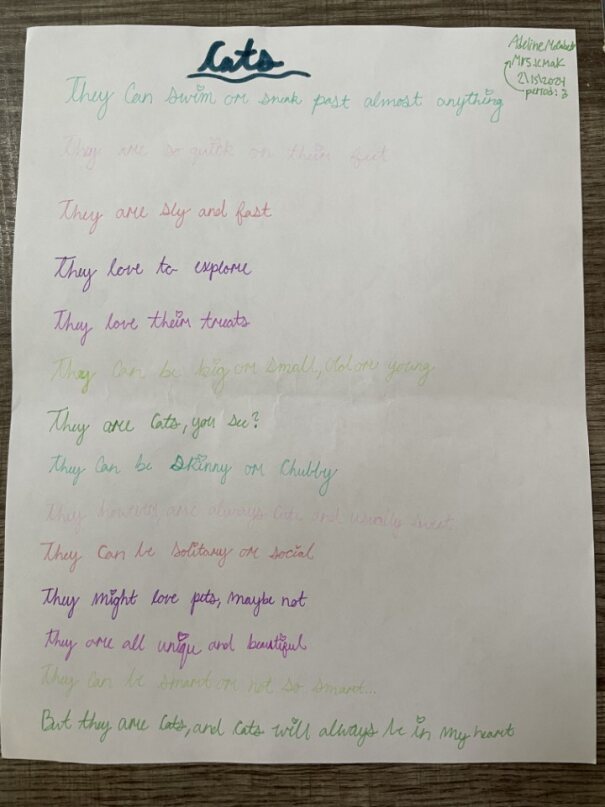 Cats
Adeline
Mrs. Kmak
2/15/2024
period: 3
They Can swim or sneak past almost anything
They are so quick on their feet
They are sly and fast
They love to explore
They love their treats
They Can be big or small, old or young
They are Cats, you see?
They Can be skinny or Chubby
They however are always Cute and usually sweet.
They Can be solitary or social
They might love pets, maybe not
they are all unique and beautiful
They can be smart or not so smart...
But they are Cats, and Cats will always be in my heart